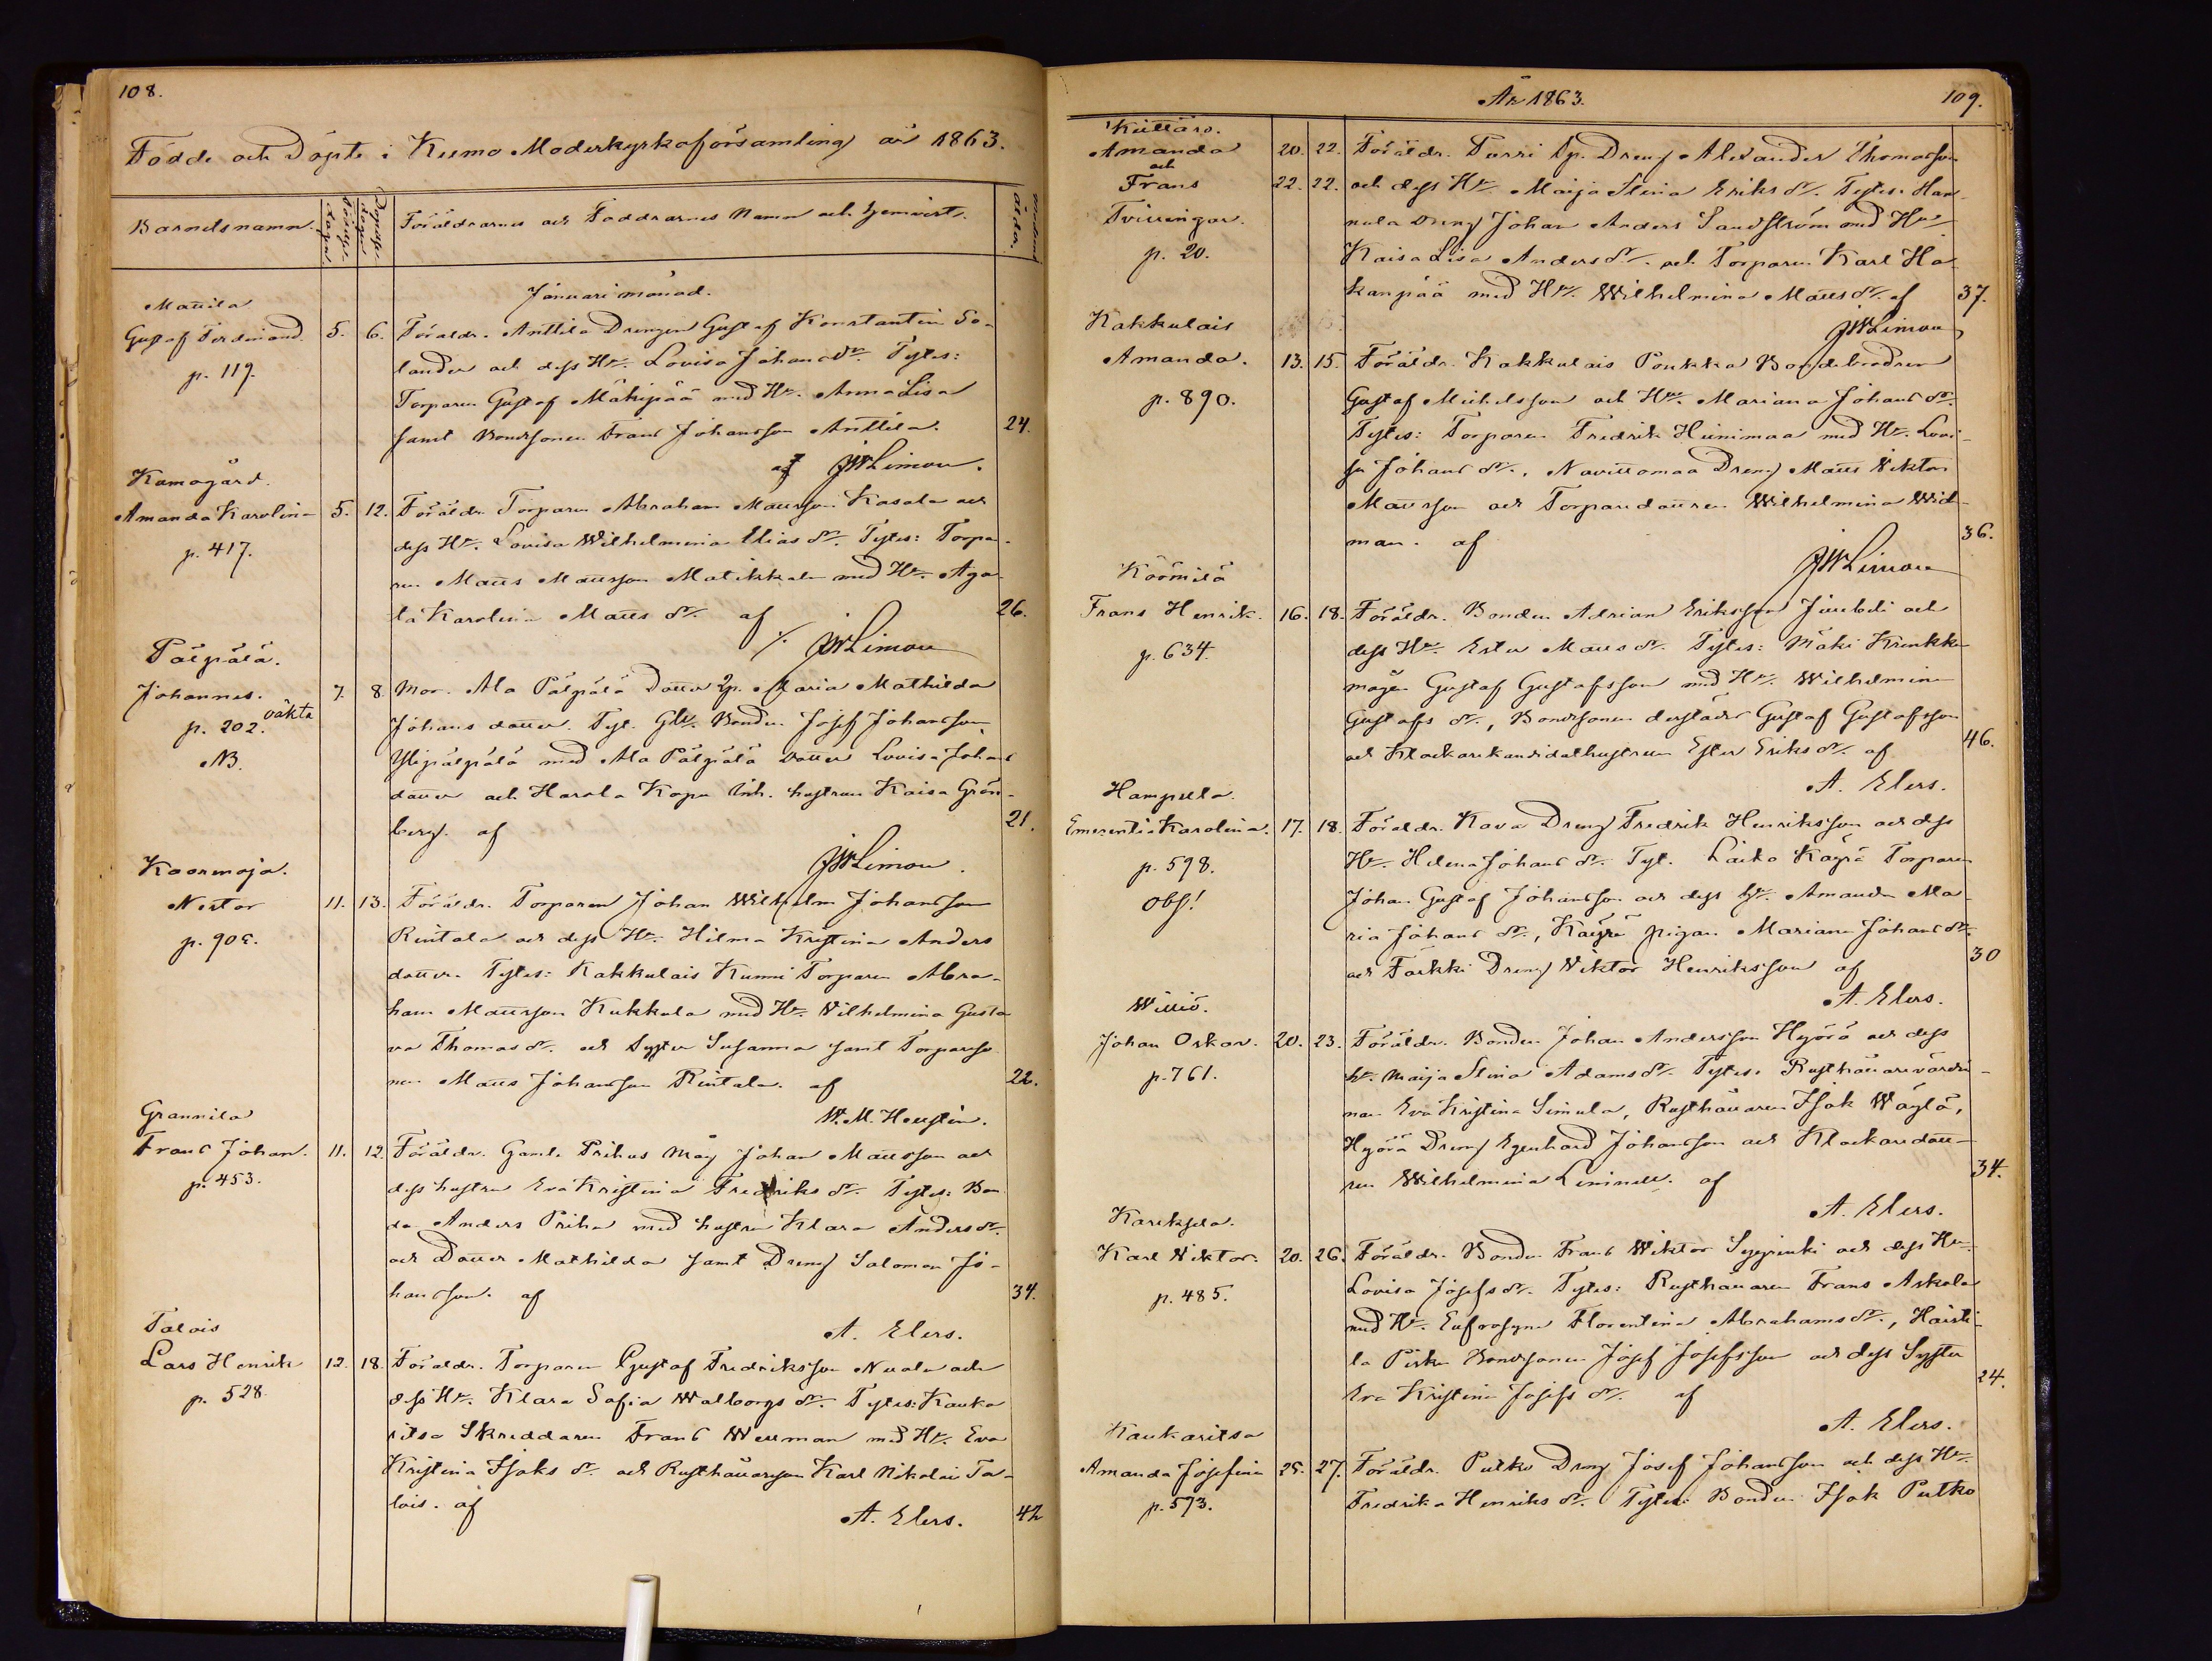 108.
Födde och Döpte i Kumo Moderkyrkoförsamling år 1863.
Barnets namn.
Föräldrarnes och Faddrarnes Namn och hemvist.
Moderns ålder.
Januari månad.
Mattila
Gustaf Ferdinand. 5. 6. Föräldr. Anttila Drengen Gustaf Konstantin So-
p. 119.
lander och dess Hu. Lovisa Johansdr. Tytes:
Torparen Gustaf Mäkipää med Hu. Anna Lisa
samt Bondsonen Frans Johansson Anttila. 24.
af JW Limon.
Kumogård.
Amanda Karolina 5. 12. Föräldr. Torparen Abraham Mattsson Kasala och
p. 417.
dess Hu. Lovisa Wilhelmina Elias dr. Tytes: Torpa-
ren Matts Mattsson Matikkala med Hu. Aga-
ta Karolina Matts dr. af 26.
JW Limon
Pälpälä.
Johannes. 7. 8. Mor. Ala Pälpälä Dotter Ip. Maria Mathilda
p. 202. oäkta
NB.
Johans dotter. Tyt. Gle. Bonden Josef Johansson
Ylipälpälä med Ala Pälpälä Dotter Lovisa Johans
dotter och Harola Kopu Inh. hustrun Kaisa Grön-
berg. af 21.
JW Limon.
Kaasmaja.
Nestor 11. 13. Föräldr. Torparen Johan Wilhelm Johansson
p. 902.
Rintala och dess Hu. Hilma Kristina Anders
dotter. Tytes: Kakkulais Kunni Torparen Abra-
ham Mattsson Kukkula med Hu. Wilhelmina Gusta
va Thomas dr. och Syster Susanna samt Torpareso
nen Matts Johansson Rintala. af 22.
W. M. Heustin.
Grannila
Frans Johan. 11. 12. Föräldr. Gamla Prihus Måg Johan Mattsson och
p. 453.
dess hustru Eva Kristina Fredriks dr. Tytes: Bon
de Anders Priha med hustru Klara Anders dr.
och Dotter Mathilda samt Dreng Salomon Jo-
hansson. af 34.
A. Elers.
Talois
Lars Henrik 12. 18. Föräldr. Torparen Gustaf Fredriksson Nuola och
p. 528.
dess Hu. Klara Sofia Walborgs dr. Tytes: Kauka
ritsa Skreddaren Frans Werman med Hu. Eva
Kristina Isaks dr. och Rusthållareson Karl Nikolai Ta-
lois. af
A. Elers. 42
År 1863. 109.
Küttäro.
Amanda 20. 22. Föräldr. Purri Sp. Dreng Alexander Thomasson
och
Frans 22. 22. och dess Hu. Maija Stina Eriks dr. Tytes: Han-
Tvillingar.
nula Dreng Johan Anders Sandström med Hu
p. 20.
Kaisa Lisa Anders dr. och Torparen Karl Ha-
kanpää med Hu. Wilhelmina Matts dr. af 37.
JW Limon
Kakkulais
Amanda. 13. 15. Föräldr. Kakkulais Poukka Bondebrodren
p. 890.
Gustaf Michelsson och Hu. Mariana Johans dr.
Tytes: Torparen Fredrik Heinimaa med Hu. Lovi-
sa Johans dr., Navittomaa Dreng Matts Viktor
Mattsson och Torparedottren Wilhelmina Wid-
man. af 36.
JW Limon
Köömilä
Frans Henrik. 16. 18. Föräldr. Bonden Adrian Eriksson Juubeli och
p. 634.
dess Hu. Ester Matts dr. Tytes: Mäki Krenkka
mågen Gustaf Gustafsson med Hu. Wilhelmina
Gustafs dr., Bondsonen derstädes Gustaf Gustafsson
och Klockarekandidathustrun Ester Eriks dr. af 46.
A. Elers.
Hampula.
Emerentia Karolina. 17. 18. Föräldr. Kava Dreng Fredrik Henriksson och dess
p. 598.
Hu. Helena Johans dr. Tyt. Laiko Käyrä Torparen
Obs!
Johan Gustaf Johansson och dess hu. Amanda Ma-
ria Johans dr., Käyrä pigan Mariana Johans dr.
och Farkki Dreng Viktor Henriksson af 30
A. Elers.
Williö.
Johan Oskar. 20. 23. Föräldr. Bonden Johan Andersson Hyörö och dess
p. 761.
hu. Maija Stina Adams dr. Tytes: Rusthållarevärdin-
nan Eva Kristina Simula, Rusthållaren Isak Wäylä,
Hyörä Dreng Egenhard Johansson och Klockaredott-
ren Wilhelmina Leninell. af 34.
A. Elers.
Kareksela.
Karl Viktor. 20. 26. Föräldr. Bonden Frans Wiktor Seppinki och dess Hu.
p. 485.
Lovisa Josefs dr. Tytes: Rusthållaren Frans Askola
med Hu. Eufrosyne Florentina Abrahams dr., Haisti-
la Pirku Bondsonen Josef Josefsson och dess Syster
Eva Kristina Josefs dr. af 24.
A. Elers.
Kaukaritsa
Amanda Josefina 25. 27. Föräldr. Putko Dreng Josef Johansson och dess Hu.
p. 573.
Fredrika Henriks dr. Tytes: Bonden Isak Putko